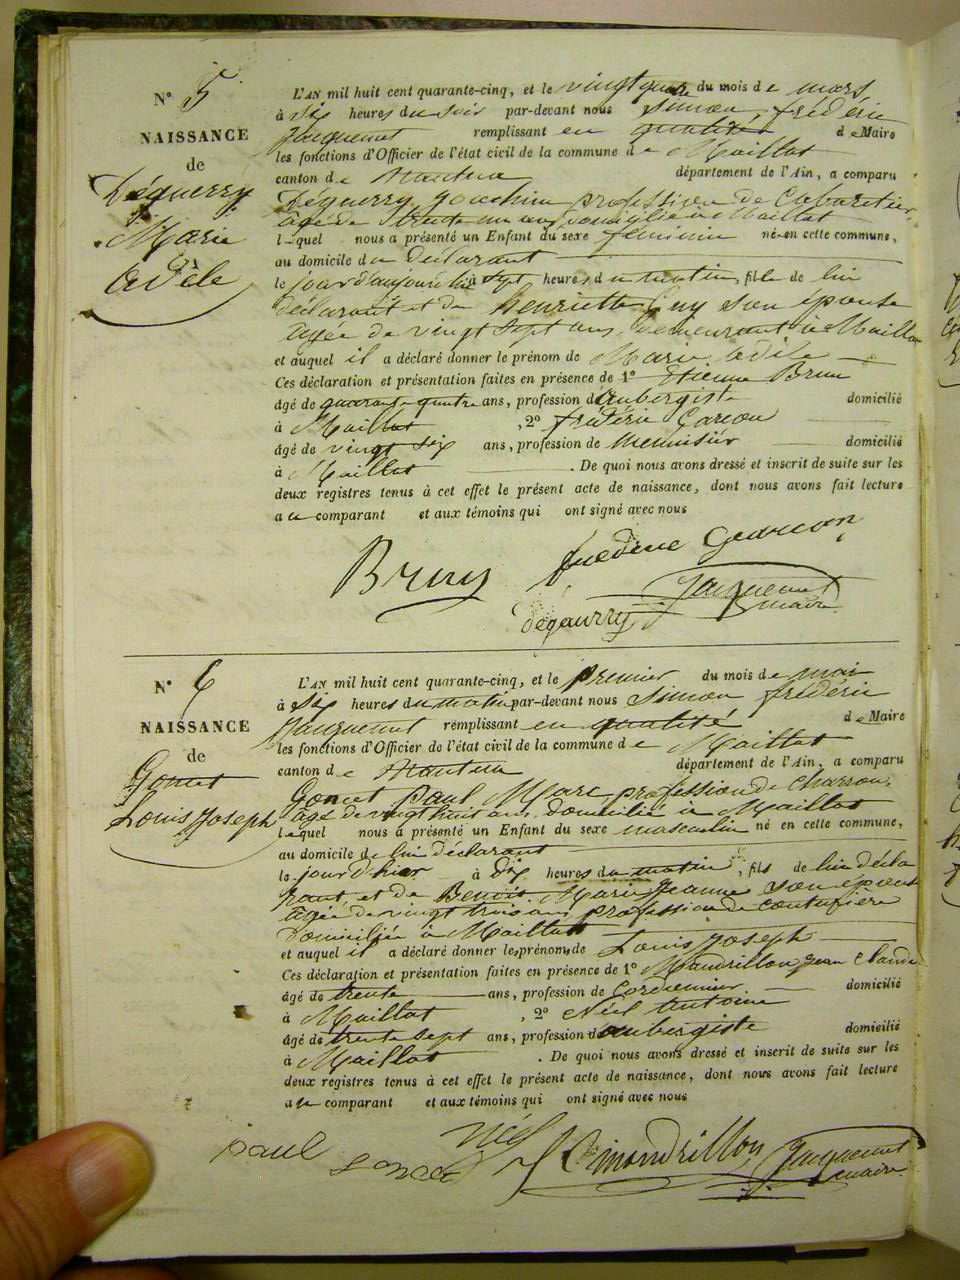 N° 5
NAISSANCE
de
Déguerry
Marie
Adèle
L'AN mil huit cent quarante-cinq, et le vingt quatre du mois de mars
à six heures du soir par-devant nous Simon, frédéric
Jacquemet remplissant en qualité de Maire
les fonctions d'Officier de l'état civil de la commune de Maillat
canton de Nantua département de l'Ain, a comparu
Déguerry Joachim profession de Cabaretier
âgé de trente un ans domicilié à Maillat
lequel nous a présenté un Enfant du sexe féminin né en cette commune,
au domicile du déclarant
le jour d'aujourd'hui à sept heures du matin, fille de lui
déclarant et de henriette son épouse
âgée de vingt sept ans, demeurant à Maillat
et auquel il a déclaré donner le prénom de Marie Adèle
Ces déclaration et présentation faites en présence de 1° Etienne Brun
âgé de quarante quatre ans, profession d'aubergiste domicilié
à Maillat, 2° frédéric
âgé de vingt six ans, profession de menuisier domicilié
à Maillat. De quoi nous avons dressé et inscrit de suite sur les
deux registres tenus à cet effet le présent acte de naissance, dont nous avons fait lecture
au comparant et aux témoins qui ont signé avec nous
Brun
déguerry
Jacquemet
maire
N° 6
NAISSANCE
de
Gonet
Louis Joseph
L'AN mil huit cent quarante-cinq, et le premier du mois de mai
à six heures du matin par-devant nous Simon frédéric
Jacquemet remplissant en qualité de Maire
les fonctions d'Officier de l'état civil de la commune de Maillat
canton de Nantua département de l'Ain, a comparu
Gonet Paul Marc profession de Charron
âgé de vingt huit ans, domicilié à Maillat
lequel nous a présenté un Enfant du sexe masculin né en cette commune,
au domicile de lui déclarant
le jour d'hier à dix heures du matin, fils de lui décla
rant, et de Benoit Marie Jeanne son épouse
âgée de vingt trois ans, profession de couturière
domiciliée à Maillat
et auquel il a déclaré donner les prénoms de Louis Joseph
Ces déclaration et présentation faites en présence de 1° Mandrillon Jean Claude
âgé de trente ans, profession de Cordonnier domicilié
à Maillat, 2° Niel Antoine
âgé de trente sept ans, profession d'aubergiste domicilié
à Maillat. De quoi nous avons dressé et inscrit de suite sur les
deux registres tenus à cet effet le présent acte de naissance, dont nous avons fait lecture
au comparant et aux témoins qui ont signé avec nous
paul gonet
niel
mandrillon
Jacquemet
maire